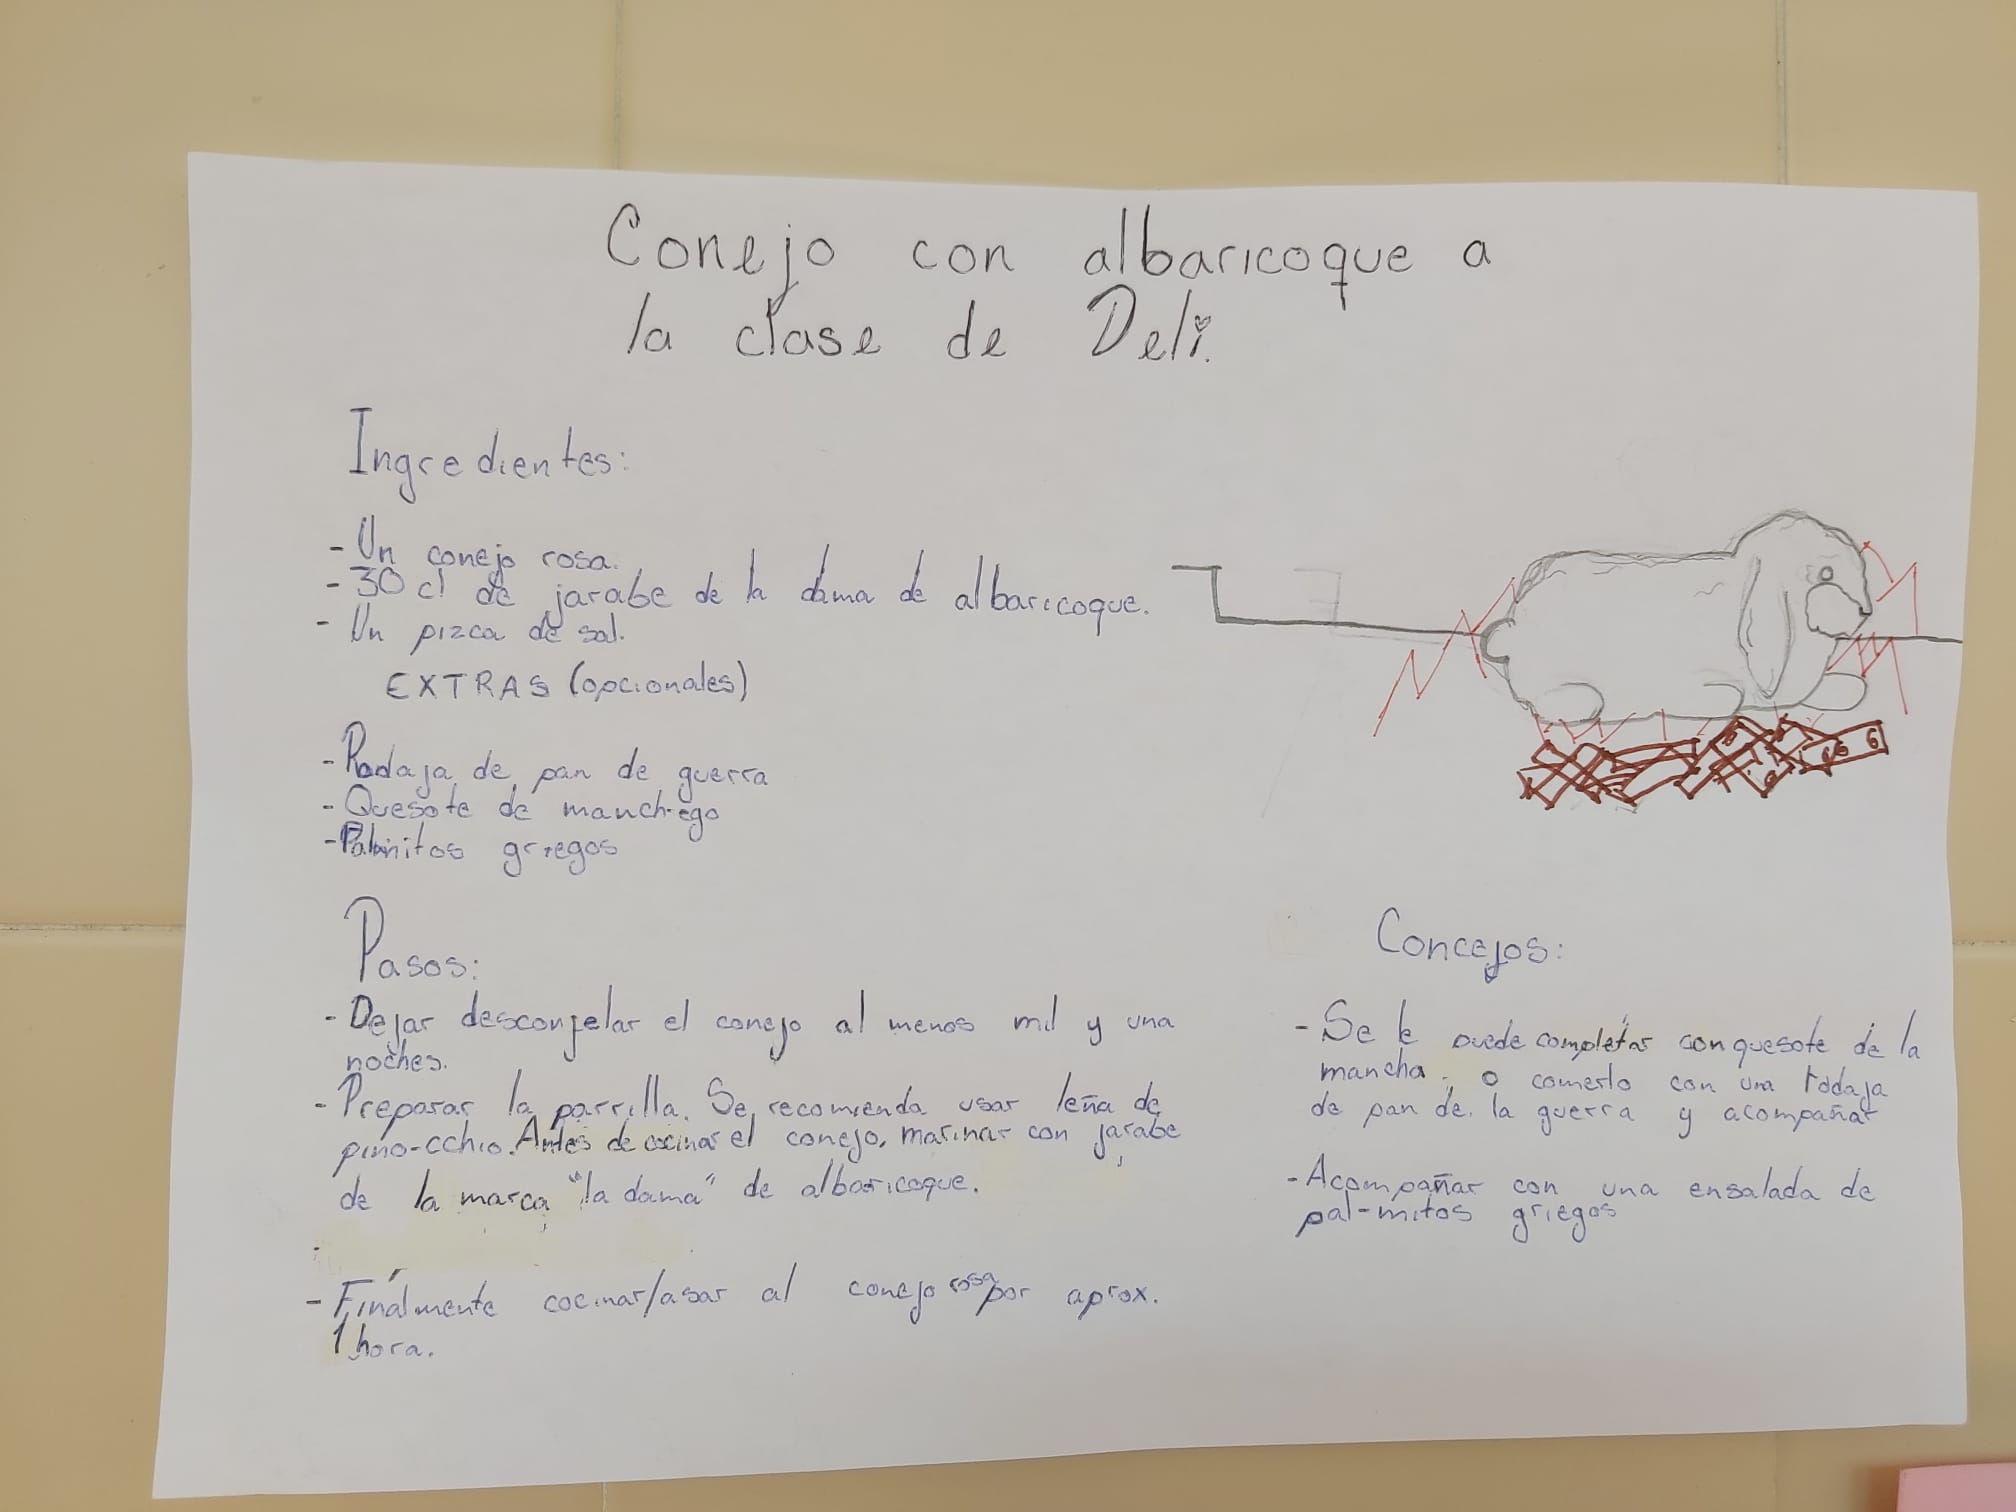 Conejo con albaricoque a
la clase de Deli.
Ingredientes:
- Un conejo rosa.
- 30 cl de jarabe de la dama de albaricoque.
- Un pizca de sal.
EXTRAS (opcionales)
- Rodaja de pan de guerra
- Quesote de manchego
- Palmitos griegos
Pasos:
- Dejar descongelar el conejo al menos mil y una
noches.
- Preparar la parrilla. Se recomienda usar leña de
pino-cchio. Antes de cocinar el conejo, marinar con jarabe
de la marca "la dama" de albaricoque.
- Finalmente cocinar/asar al conejo rosa por aprox.
1 hora.
Concejos:
- Se le puede completar con quesote de la
mancha, o comerlo con una rodaja
de pan de la guerra y acompañar
- Acompañar con una ensalada de
pal-mitos griegos